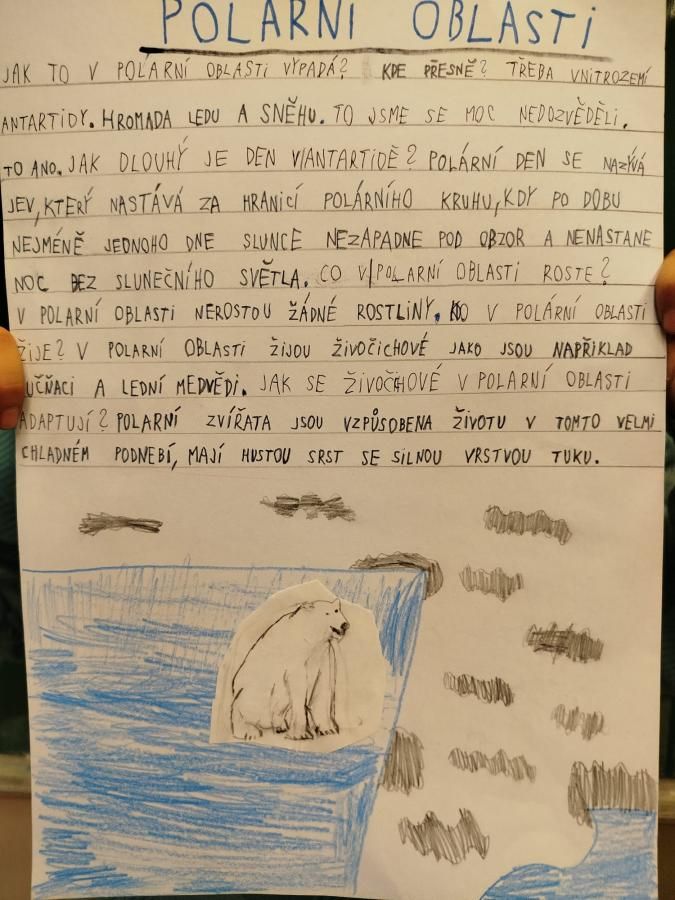 POLÁRNÍ OBLASTI
JAK TO V POLÁRNÍ OBLASTI VYPADÁ? KDE PŘESNĚ? TŘEBA VNITROZEMÍ
ANTARTIDY. HROMADA LEDU A SNĚHU. TO JSME SE MOC NEDOZVĚDĚLI.
TO ANO. JAK DLOUHÝ JE DEN V/ANTARTIDĚ? POLÁRNÍ DEN SE NAZÝVÁ
JEV, KTERÝ NASTÁVÁ ZA HRANICÍ POLÁRNÍHO KRUHU, KDY PO DOBU
NEJMÉNĚ JEDNOHO DNE SLUNCE NEZAPADNE POD OBZOR A NENASTANE
NOC BEZ SLUNEČNÍHO SVĚTLA. CO V/POLARNÍ OBLASTI ROSTE?
V POLARNÍ OBLASTI NEROSTOU ŽÁDNÉ ROSTLINY. KO V POLÁRNÍ OBLASTI
ŽIJE? V POLARNÍ OBLASTI ŽIJOU ŽIVOČICHOVÉ JAKO JSOU NAPŘIKLAD
TUČŇACI A LEDNÍ MEDVĚDI. JAK SE ŽIVOČICHOVÉ V POLARNÍ OBLASTI
ADAPTUJÍ? POLARNÍ ZVÍŘATA JSOU VZPŮSOBENA ŽIVOTU V TOMTO VELMI
CHLADNÉM PODNEBÍ, MAJÍ HUSTOU SRST SE SILNOU VRSTVOU TUKU.